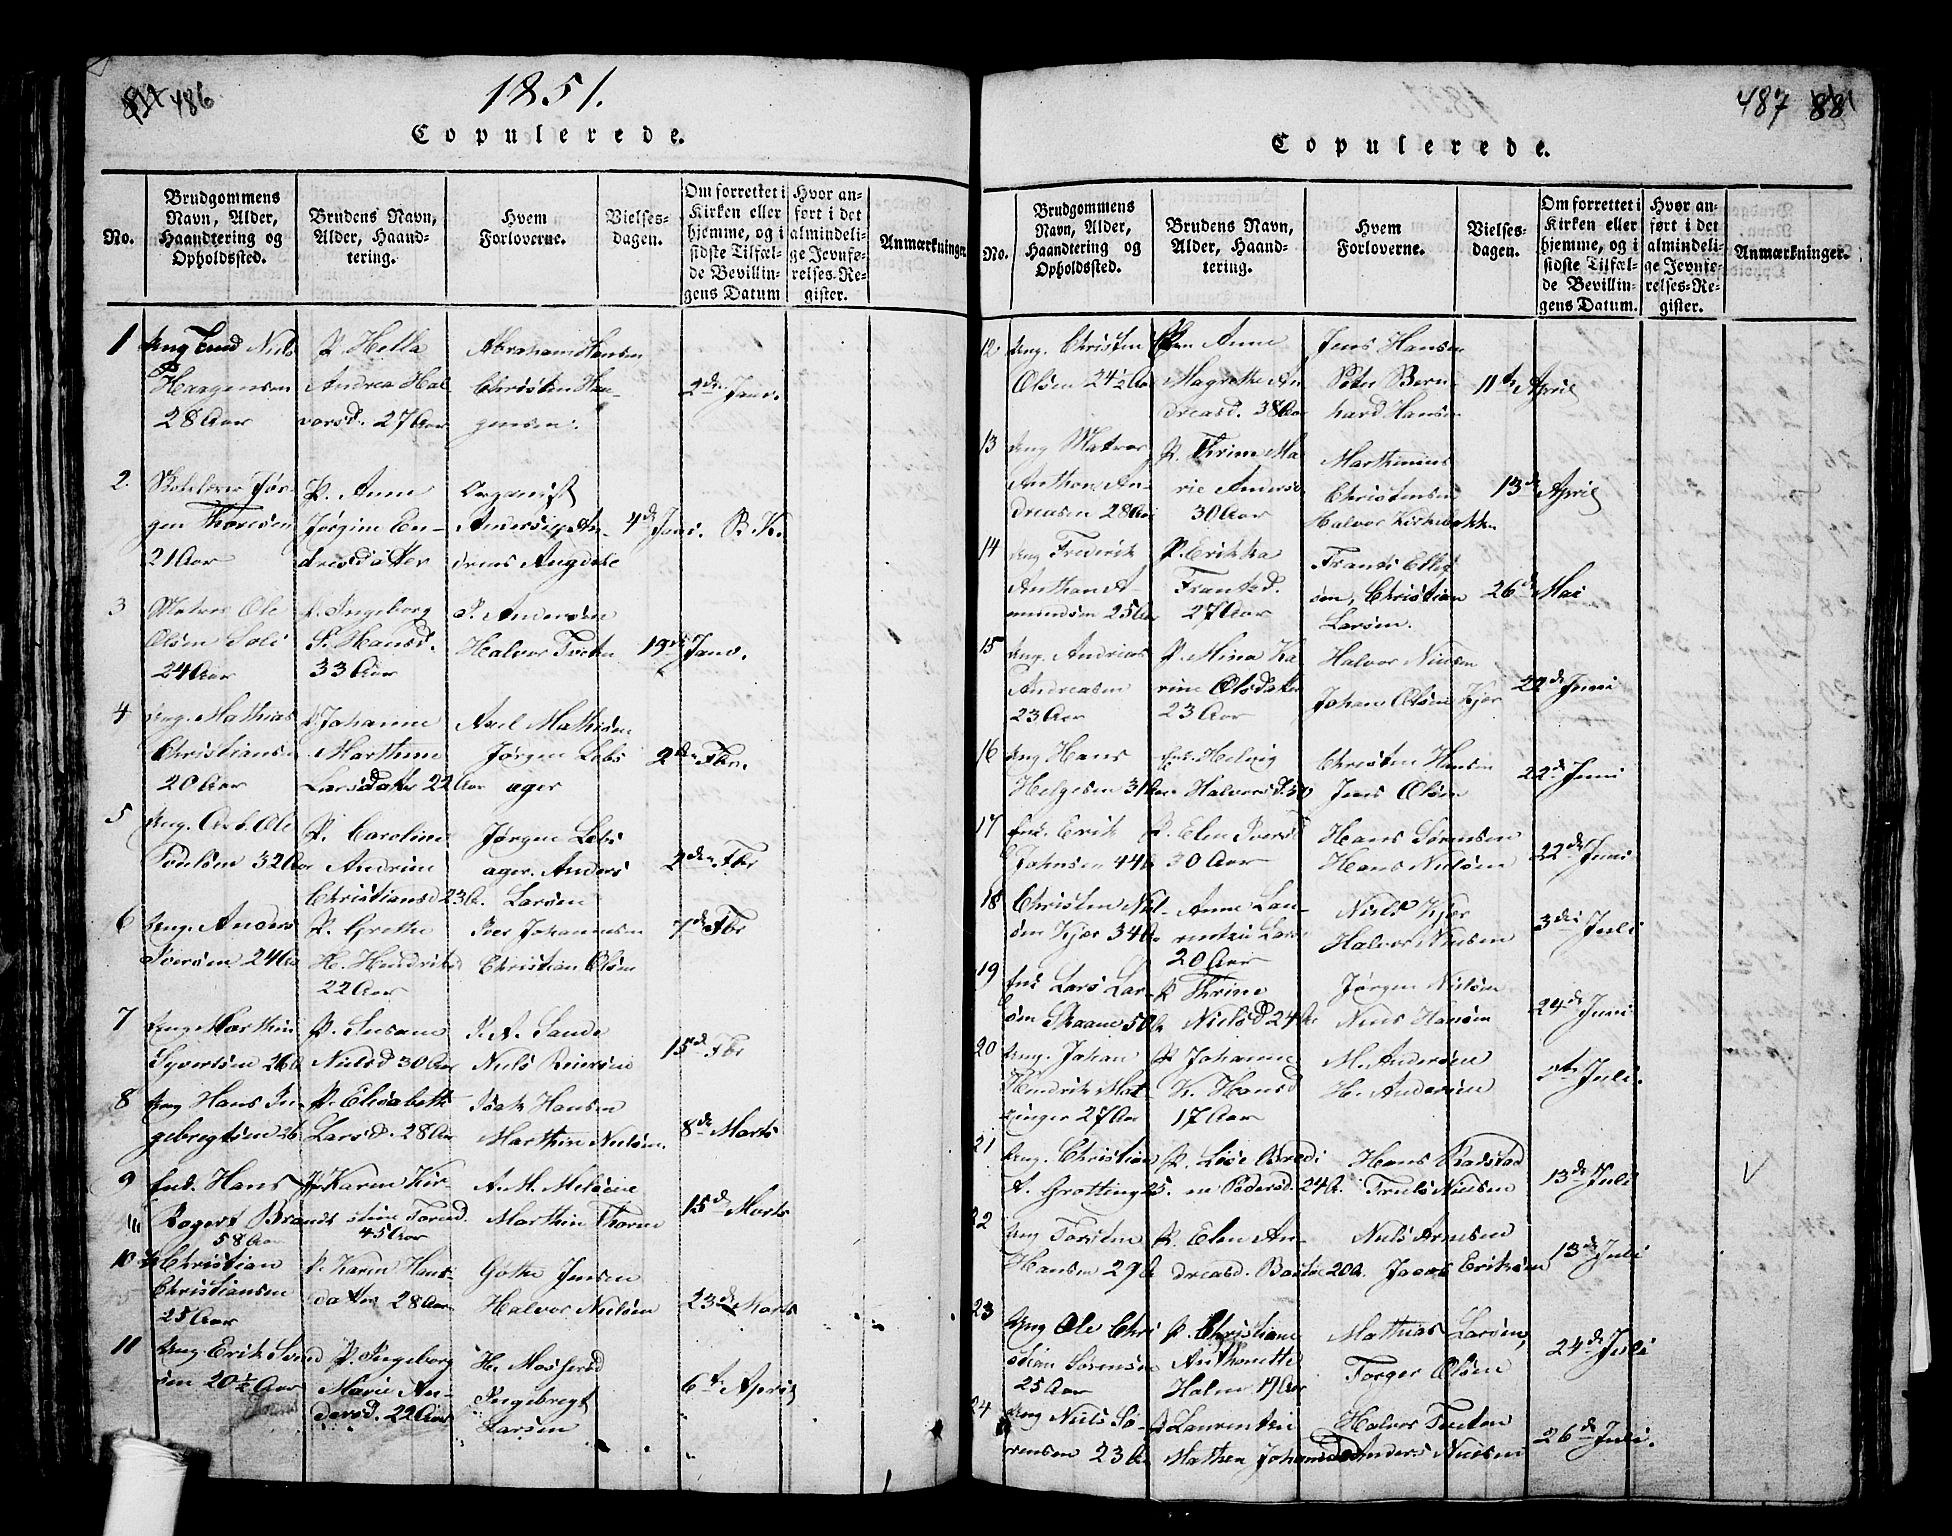 486
1851.
Copulerede.
No.
Brudgommens Navn, Alder, Haandtering og Opholdssted.
Brudens Navn, Alder, Haandtering.
Hvem Forloverne.
Vielsesdagen.
Om forrettet i Kirken eller hjemme, og i sidste Tilfælde Bevillingens Datum
Hvor anført i det almindelige Jevnførelses-Register.
Anmærkninger.
1 Ung Niels
Haagensen
28 Aar
P. Hella
Andrea Halvorsd. 27 Aar
Abraham Hansen
Christen Haugensen.
2den Janv.
2. Jørgen Thoresen
21 Aar
P. Anne
Jørgine Endresdatter
Organist
Andersen
4de Janv. B. K.
3 Matros Ole
Olsen
24 Aar
P. Ingeborg
S. Hansd.
33 Aar
P. Andersen
Halvor Tveten
19de Janv.
4 Ung. Mathias
Christiansen
20 Aar
P. Johanne
Marthine
Larsdatter 22 Aar
Axel Mathisen
Jørgen Lobsager
2den Fbr.
5 Ung. Arb. Ole
32 Aar
P. Caroline
Andrine
Christiansd 23 A.
Jørgen Lobsager. Anders
Larsen
2den Fbr
6 Ung. Anders
Iversen 24 Aar
P. Grethe
H. Hendriksd
22 Aar
Iver Johannesen
Christian Olsen
7de Fbr
7 Ung. Marthin
Syvertsen 26 A
P. Susane
Nielsd 30 Aar
P. A. Sande
Niels Reiersen
15de Fbr
8 Ung Hans Ingebregtsen 26
P. Elisabeth
Larsd. 28 Aar
Isak Hansen
Marthin Nielsen.
8de Marts
9 Enk. Hans
Rogert Brandt
58 Aar
P. Karen Kirstine
45 Aar
A. M. Nielsen
Marthin Thorne
15de Marts
10 Christian
Christiansen
25 Aar
P. Karen Hansdatter 28 Aar
Gøthe Jensen
Halvor Nielsen
23de Marts
11 Ung. Erik Svendsen 20 ½ Aar
P. Ingeborg
Marie Andersd. 22 Aar
H.
Ingebregt
Larsen
6te April
487 88
Copulerede.
No.
Brudgommens Navn, Alder, Haandtering og Opholdssted.
Brudens Navn, Alder, Haandtering.
Hvem Forloverne.
Vielsesdagen.
Om forrettet i Kirken eller hjemme, og i sidste Tilfælde Bevillingens Datum.
Hvor anført i det almindelige Jevnførelses-Register.
Anmærkninger.
12 Ung. Christen
Olsen 24 ½ Aar
Anne
Magrethe Andreasd. 38 Aar
Jens Hansen
Peter Bernhard Hansen
11te April
13 Ung Matros
Anthon Andreasen 28 Aar
P. Thrine Marie Anders
30 Aar
Marthinius
Christensen
Halvor Kirkebakken
13de April
14 Ung Frederik
Anthon Amundsen 25 Aar
P. Erikka
Frantsd.
27 Aar
Frants Ellefsen, Christian
Larsen.
26de Mai
15 Ung. Andreas
Andreasen
23 Aar
P. Mina Karine Olsdatter
23 Aar
Halvor Nielsen
Johan Olsen Kjær
22de Juni
16 Ung Hans
Helgesen 31 Aar
Enk. Helvig
Halvorsd. 50
Christen Hansen
Jens Olsen
22de Juni
17 Enk. Erik
Johnsen 44 A
P. Elen Iversd
30 Aar
Hans Sørensen
Hans Nielsen
22de Juni
18 Christen Nielsen Kjær 34 A
Anne Laurentse Lars
20 Aar
Niels Kjær
Halvor Nielsen
3die Juli
19 Enk Lars Larsen Skaane 50 A
P. Thrine
Nielsd 24 A
Jørgen Nielsen
Niels Hansen
24de Juni
20 Ung. Johan
Hendrik
27 Aar
P. Johanne
K. Hansd
17 Aar
M. Andersen
H. Andersen
2den Juli.
21 Ung. Christian
A. Grotting 25.
P. Lise
Pedersd. 24 A.
Hans
Truls Nielsen
13de Juli
22 Ung
Hansen 29 A
P. Elen Andreasd. 20 A.
Niels Arnesen
Jacob Eriksen
13de Juli
23 Ung Ole Christian Sørensen
25 Aar
P. Christiane
Anthonette
Holm 19 Aar
Mathias Larsen,
Torger Olsen
24de Juli
24 Ung Niels Sørensen 23 A
P Laurentse
Mathea
Halvor Tveten
Anders Nielsen
26de Juli.